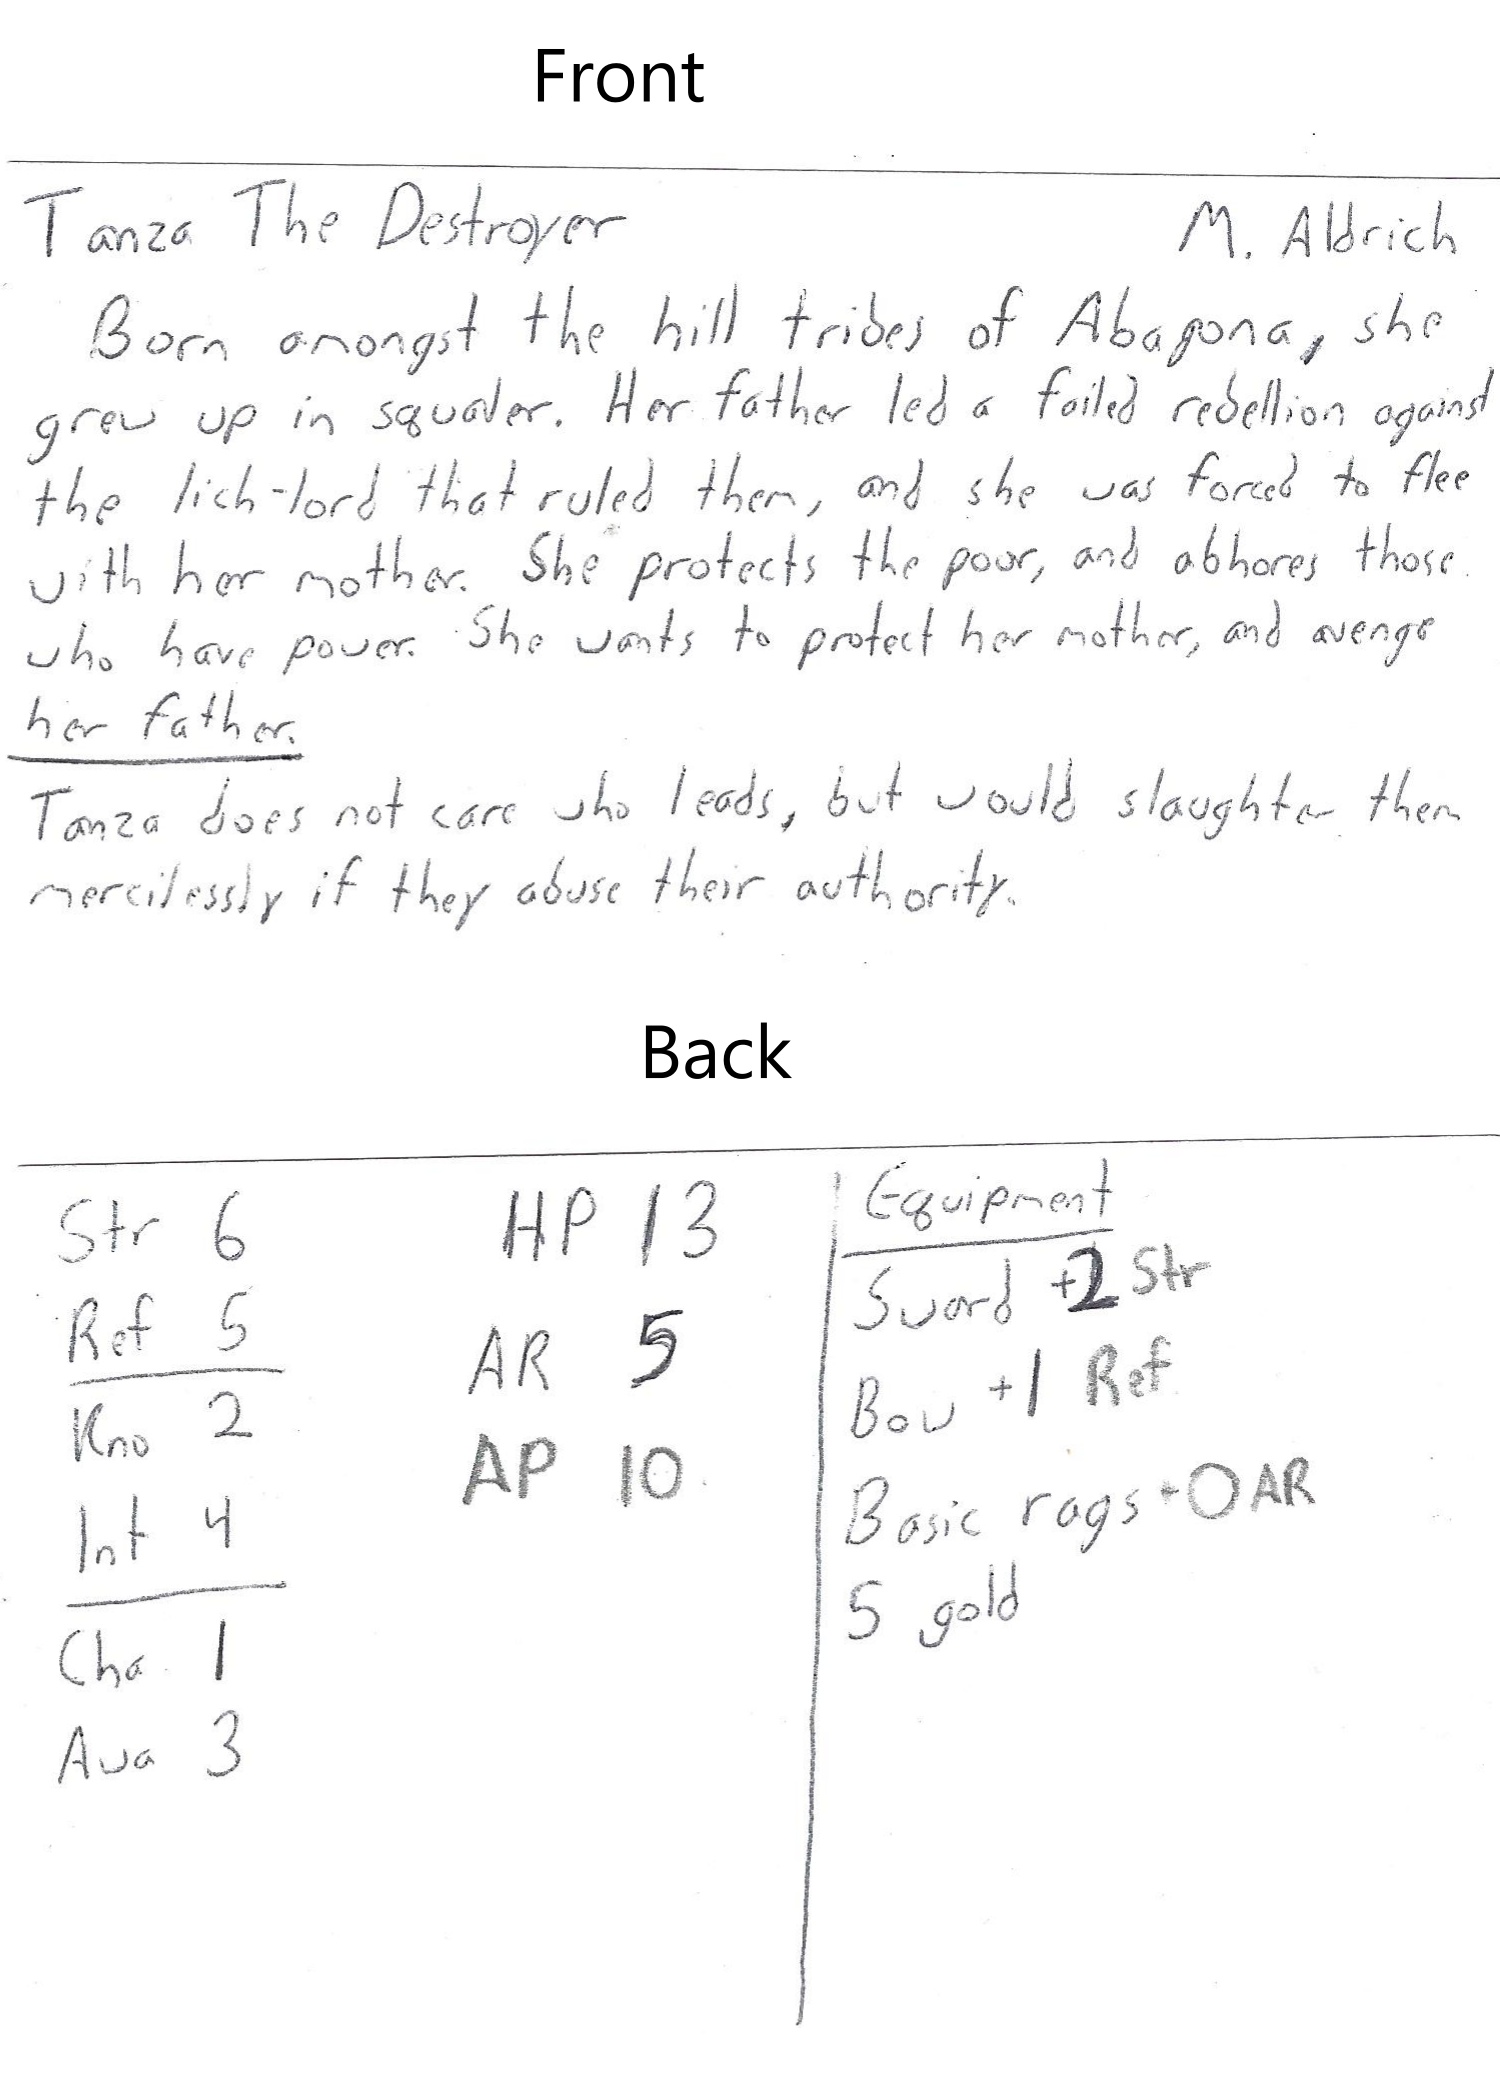 Front
Tanza The Destroyer M. Aldrich
Born amongst the hill tribes of Abagona, she
grew up in squaler. Her father led a failed rebellion against
the lich-lord that ruled them, and she was forced to flee
with her mother. She protects the poor, and abhores those
who have power. She wants to protect her mother, and avenge
her father.
Tanza does not care who leads, but would slaughter them
mercilessly if they abuse their authority.
Back
Str 6 HP 13 Equipment
Ref 5 AR 5 Sword +2 Str
Kno 2 AP 10 Bow +1 Ref
Int 4 Basic rags +0 AR
Cha 1 5 gold
Awa 3